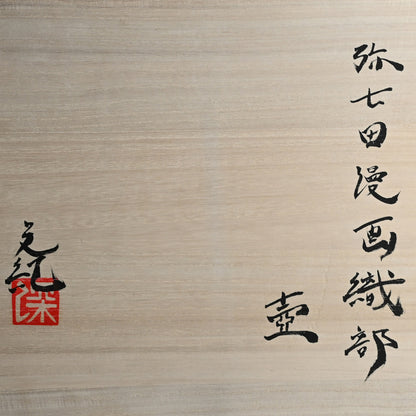 弥七田漫画織部
壺
元紀
深